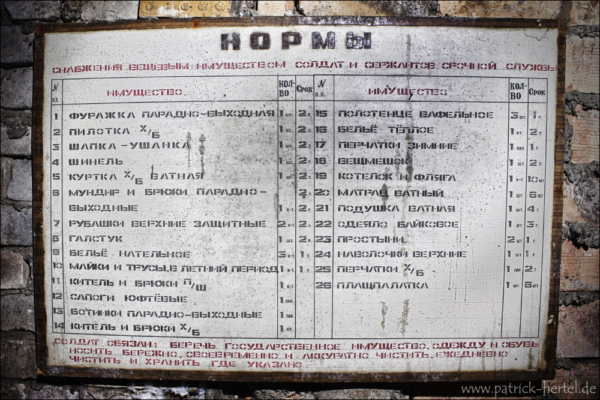 НОРМЫ
СНАБЖЕНИЯ ВЕЩЕВЫМ ИМУЩЕСТВОМ СОЛДАТ И СЕРЖАНТОВ СРОЧНОЙ СЛУЖБЫ
N п.п. ИМУЩЕСТВО КОЛ-ВО Срок N п.п. ИМУЩЕСТВО КОЛ-ВО Срок
1 ФУРАЖКА ПАРАДНО-ВЫХОДНАЯ 1 2 г. 15 ПОЛОТЕНЦЕ ВАФЕЛЬНОЕ 3 1 г.
2 ПИЛОТКА Х/Б 1 16 БЕЛЬЁ ТЁПЛОЕ 1 2 г.
3 ШАПКА-УШАНКА 1 2 г. 17 ПЕРЧАТКИ ЗИМНИЕ 1 1 г.
4 ШИНЕЛЬ 1 2 г. 18 ВЕЩМЕШОК 1
5 КУРТКА Х/Б ВАТНАЯ 1 2 г. 19 КОТЕЛОК И ФЛЯГА 1
6 МУНДИР И БРЮКИ ПАРАДНО- 20 МАТРАЦ ВАТНЫЙ 1
ВЫХОДНЫЕ 1 2 г. 21 ПОДУШКА ВАТНАЯ 1 4 г.
7 РУБАШКИ ВЕРХНИЕ ЗАЩИТНЫЕ 2 2 г. 22 ОДЕЯЛО БАЙКОВОЕ 1 3 г.
8 ГАЛСТУК 1 2 г. 23 ПРОСТЫНИ 2 1 г.
9 БЕЛЬЁ НАТЕЛЬНОЕ 3 1 г. 24 НАВОЛОЧКИ ВЕРХНИЕ 1 1 г.
10 МАЙКИ И ТРУСЫ, В ЛЕТНИЙ ПЕРИОД 1 1 г. 25 ПЕРЧАТКИ Х/Б 1 2 г.
11 КИТЕЛЬ И БРЮКИ П/Ш 1 26 ПЛАЩПАЛАТКА 1
12 САПОГИ ЮФТЕВЫЕ 1
13 БОТИНКИ ПАРАДНО-ВЫХОДНЫЕ 1
14 КИТЕЛЬ И БРЮКИ Х/Б 1
СОЛДАТ ОБЯЗАН: БЕРЕЧЬ ГОСУДАРСТВЕННОЕ ИМУЩЕСТВО, ОДЕЖДУ И ОБУВЬ
НОСИТЬ БЕРЕЖНО, СВОЕВРЕМЕННО И АККУРАТНО ЧИСТИТЬ, ЕЖЕДНЕВНО
ЧИСТИТЬ И ХРАНИТЬ ГДЕ УКАЗАНО
www.patrick-hertel.de
© PATRICK HERTEL